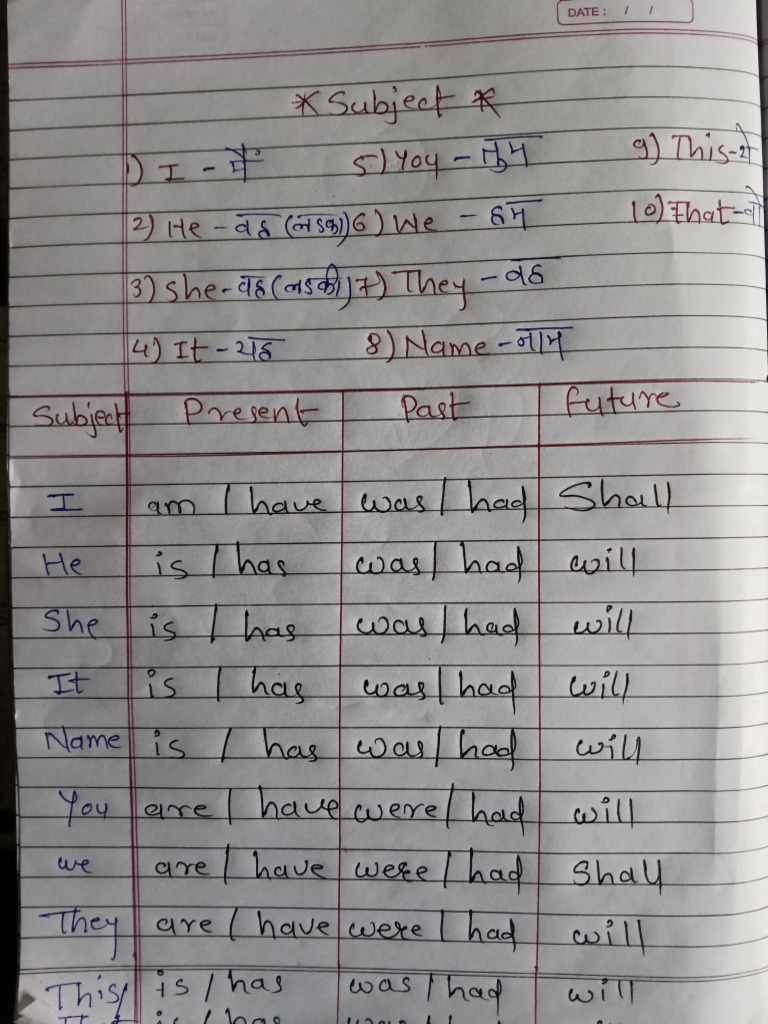 DATE: / /
* Subject *
1) I - मैं 5) You - तुम 9) This - ये
2) He - वह (लडका) 6) We - हम 10) That - वो
3) She - वह (लडकी) 7) They - वह
4) It - यह 8) Name - नाम
Subject Present Past future
I am / have was / had Shall
He is / has was / had will
She is / has was / had will
It is / has was / had will
Name is / has was / had will
You are / have were / had will
we are / have were / had Shall
They are / have were / had will
This/ is / has was / had will